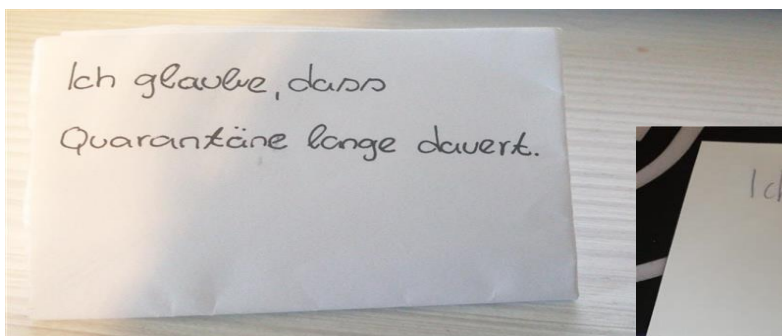 Ich glaube, dass
Quarantäne lange dauert.